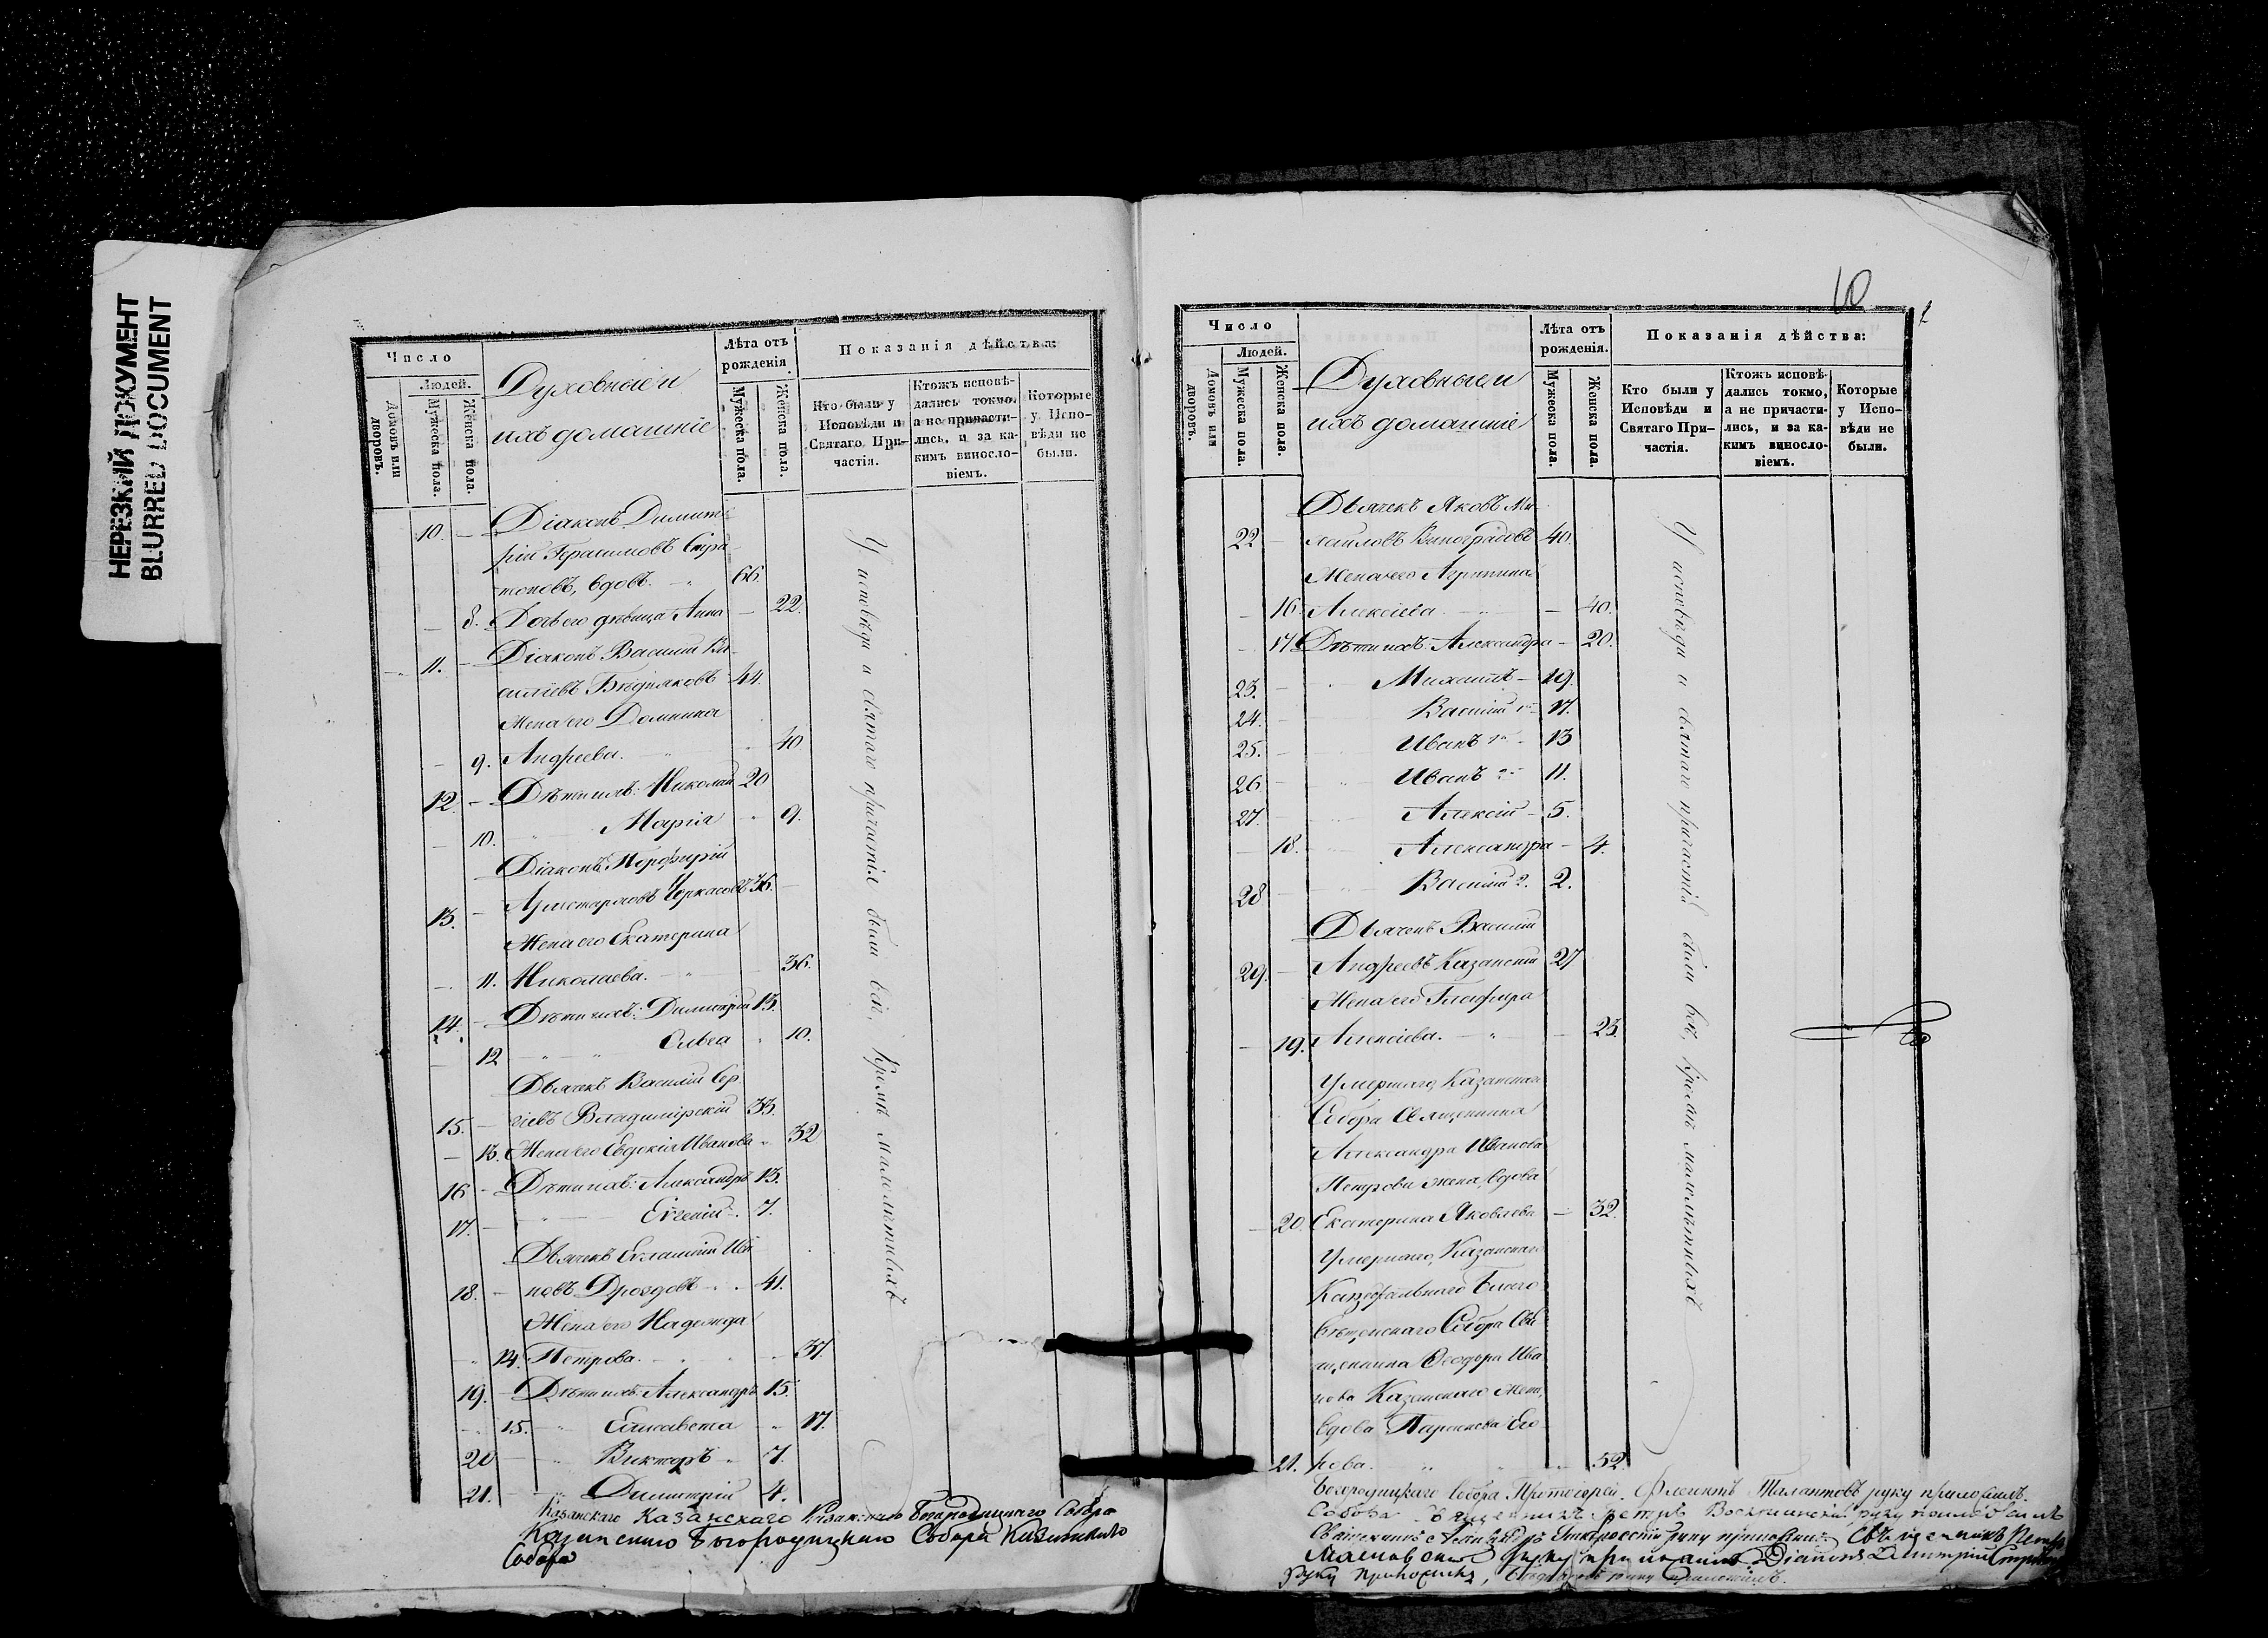 НЕРЕЗКИЙ ДОКУМЕНТ
BLURRED DOCUMENT
Число
Людей.
Домовъ или дворовъ.
Мужеска пола.
Женска пола.
Духовные и
ихъ домашніе
Лѣта отъ рожденія.
Мужеска пола.
Женска пола.
Показанія дѣйства:
Кто были у Исповѣди и Святаго Причастія.
Ктожъ исповѣдались токмо, а не причастились, и за какимъ винословіемъ.
Которые у Исповѣди не были.
10. — Діаконъ Димит-
рій Герасимовъ Стра-
тоновъ, вдовъ. — 66.
— 8. Дочь его дѣвица Анна — 22.
11. — Діаконъ Василій Ва-
силіевъ Бѣдняковъ 44.
Жена его Домнина
— 9. Андреева. 40
12. — Дѣти ихъ: Николай 20
— 10. Марія 9.
Діаконъ Порфирій
13. — Аристарховъ Черкасовъ 36.
Жена его Екатерина
— 11. Николаева. 36.
14. — Дѣти ихъ: Димитрій 13.
— 12 Ольга 10.
Дьячекъ Василій Сер-
15. — гіевъ Владимірскій 33.
— 13. Жена его Евдокія Иванова 32
16 — Дѣти ихъ: Александръ 13.
17. — Евгеній 7.
Дьячекъ Евлампій Ива-
18. — новъ Дроздовъ 41.
Жена его Надежда
14. Петрова. 37.
19. — Дѣти ихъ: Александръ 15.
15. Елисавета 17.
20 — Викторъ 7.
21. — Димитрій 4.
У исповѣди и святаго причастія были всѣ, кромѣ малолѣтнихъ
Казанскаго Казанскаго Казанскаго Богородицкаго Собора
Казанскаго Богородицкаго Собора Казанскаго
Собора
10
Число
Людей.
Домовъ или дворовъ.
Мужеска пола.
Женска пола.
Духовные и
ихъ домашніе
Лѣта отъ рожденія.
Мужеска пола.
Женска пола.
Показанія дѣйства:
Кто были у Исповѣди и Святаго Причастія.
Ктожъ исповѣдались токмо, а не причастились, и за какимъ винословіемъ.
Которые у Исповѣди не были.
Дьячекъ Яковъ Ми-
22 — хаиловъ Виноградовъ 40.
Жена его Агрипина
— 16. Алексіева. — 40.
— 17 Дѣти ихъ: Александра — 20.
23. — Михаилъ — 19.
24. — Василій 1й 17.
25. — Иванъ 1й 13
26 — Иванъ 2й 11.
27. — Алексій — 5.
— 18. Александра — 4.
28 — Василій 2. 2.
Дьячекъ Василій
29. — Андреевъ Казанскій 27
Жена его Глафира
— 19. Алексіева. — 23.
Умершаго, Казанскаго
Собора Священника
Александра Иванова
Петрова жена, вдова
— 20. Екатерина Яковлева — 32.
Умершаго, Казанскаго
Каѳедральнаго Благо-
вѣщенскаго Собора Свя-
щенника Ѳеодора Ива-
нова Казанскаго жена,
вдова Параскева Его-
21. рева. 52.
У исповѣди и святаго причастія были всѣ, кромѣ малолѣтнихъ
Богородицкаго Собора Протоіерей Талантовъ руку приложилъ.
Собора Священникъ Петръ руку приложилъ
Священникъ руку приложилъ. Священникъ Петръ
руку приложилъ. Діаконъ Димитрій
руку приложилъ, Бѣдняковъ руку приложилъ.